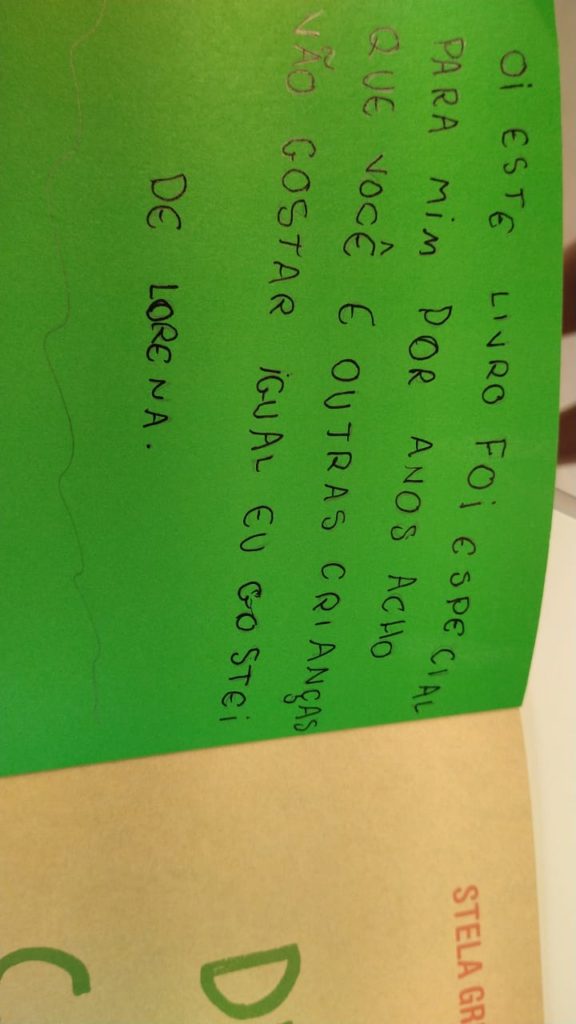 OI ESTE LIVRO FOI ESPECIAL
PARA MIM POR ANOS ACHO
QUE VOCÊ E OUTRAS CRIANÇAS
VÃO GOSTAR IGUAL EU GOSTEI
DE LORENA.
STELA GR
D
C